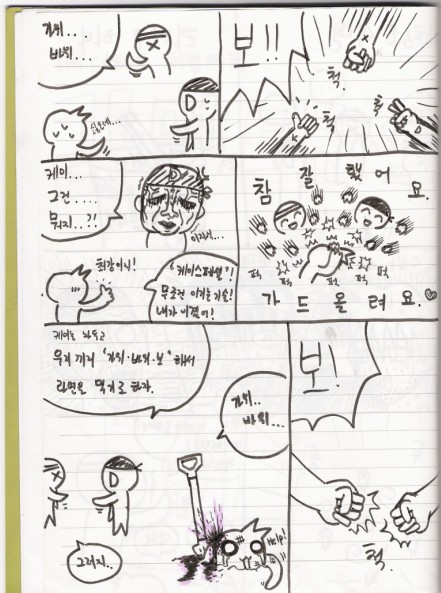 가위..
바위...
보!!
척.
척
척
케이...
그건....
뭐지..?!
D
최강이지!
"케이스페셜"!
무조건 이기는 기술!
내가 이겼어!
참 잘 했 어 요.
퍽 퍽 퍽 퍽
가 드 올 려 요.♡
케이는 놔두고
우리 끼리 '가위·바위·보'해서
라면을 먹기로 하자.
가위..
바위...
D
그러지..
Help!
보!
척.